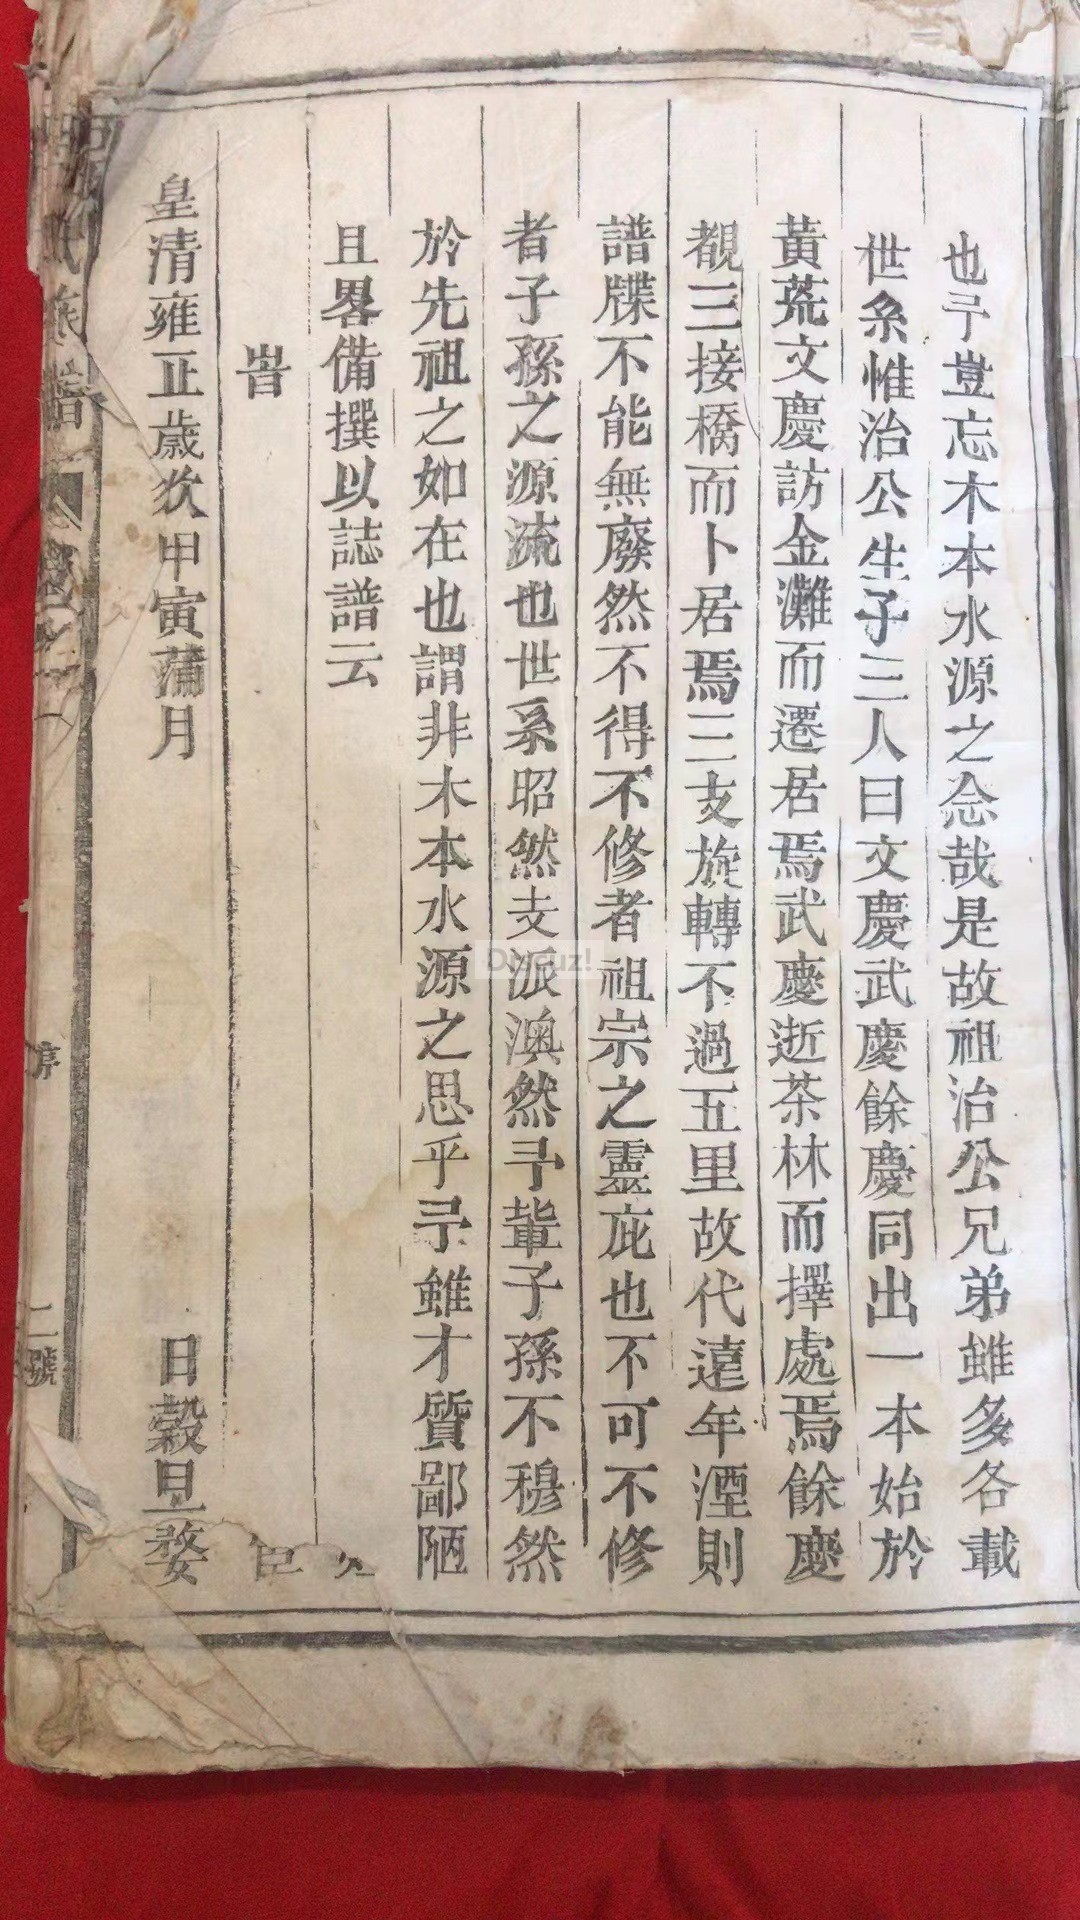 也予豈忘木本水源之念哉是故祖治公兄弟雖多各載
世系惟治公生子三人曰文慶武慶餘慶同出一本始於
黃荒文慶訪金灘而遷居焉武慶逝茶林而擇處焉餘慶
覩三接橋而卜居焉三支旋轉不過五里故代遠年湮則
譜牒不能無廢然不得不修者祖宗之靈庇也不可不修
者子孫之源流也世系昭然支派渙然予輩子孫不穆然
於先祖之如在也謂非木本水源之思乎予雖才質鄙陋
且畧備撰以誌譜云
旹
皇清雍正歲次甲寅蒲月 日穀旦
氏族譜
序
二號
Discuz!